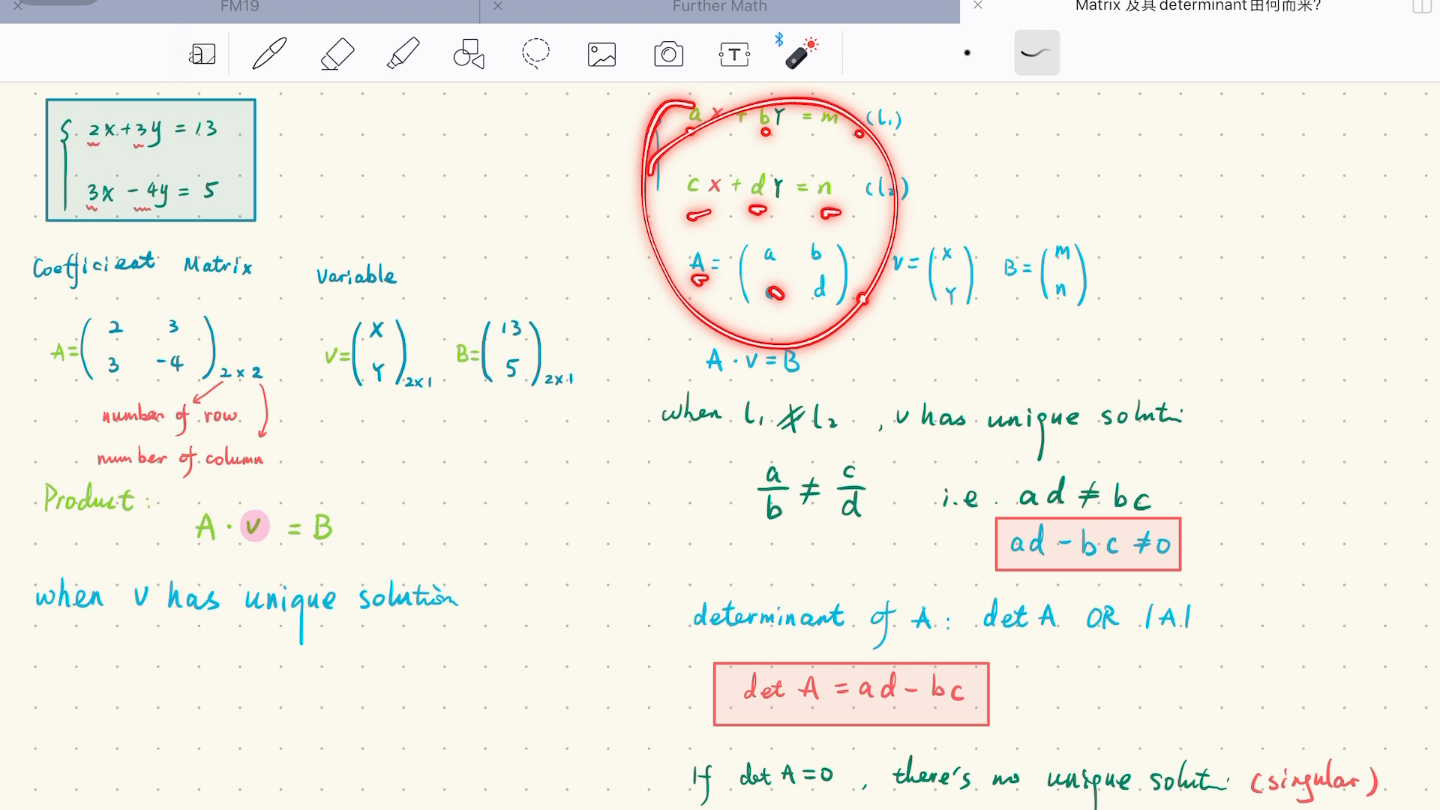 FM19
Further Math
Matrix 及其determinant由何而来?
2x+3y = 13
3x - 4y = 5
Coefficient Matrix
Variable
A= ( 2 3
3 -4 ) 2×2
V= ( X
Y ) 2×1
B= ( 13
5 ) 2×1
number of row
number of column
Product:
A · v = B
when v has unique solution
ax + bY = m (l₁)
cx + dY = n (l₂)
A = ( a b
d )
V = ( X
Y )
B = ( m
n )
A · v = B
when l₁ ∦ l₂ , v has unique soluti
a/b ≠ c/d i.e. ad ≠ bc
ad - bc ≠0
determinant of A: det A OR |A|
det A = ad - bc
If det A = 0 , there's no unique soluti (singular)